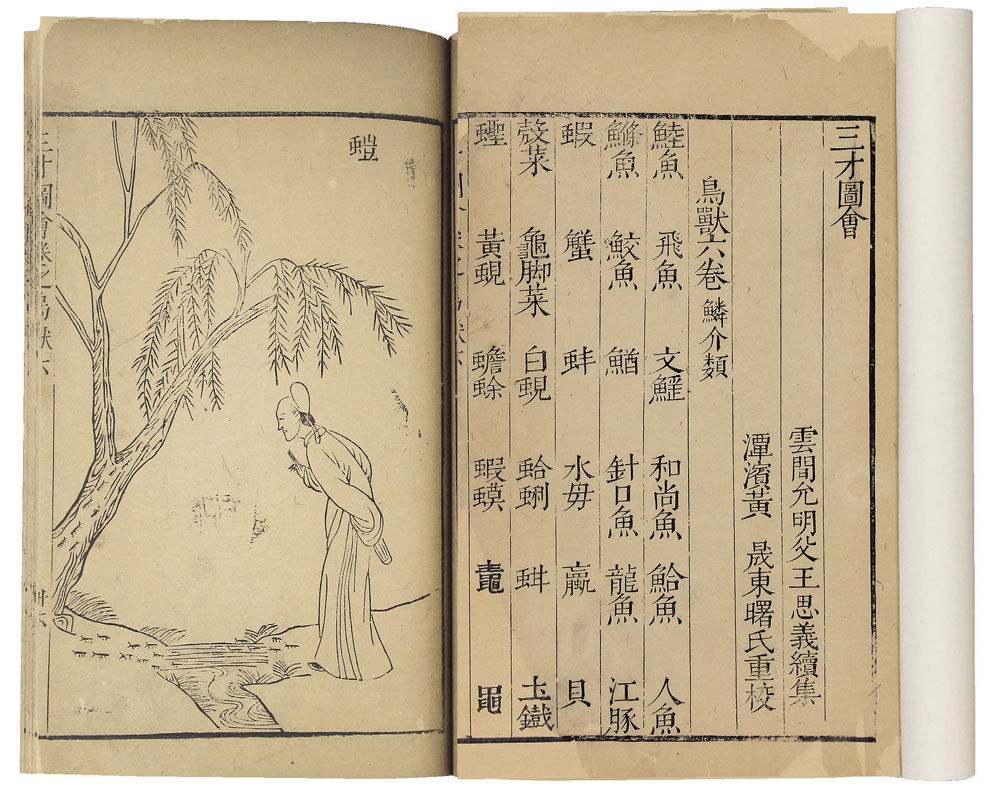 三才圖會
雲間允明父王思義續集
潭濱黃 晟東曙氏重校
鳥獸六卷 鱗介類
鯥魚 飛魚 文鰩 和尚魚 鮯魚 人魚
鰷魚 鮫魚 鰌 針口魚 龍魚 江豚
蝦 蟹 蚌 水母 蠃 貝
殼菜 龜脚菜 白蜆 蛤蜊 蚶 土鐵
蟶 黃蜆 蟾蜍 蝦蟆 鼃 黽
螘
三才圖會卷之鳥獸六